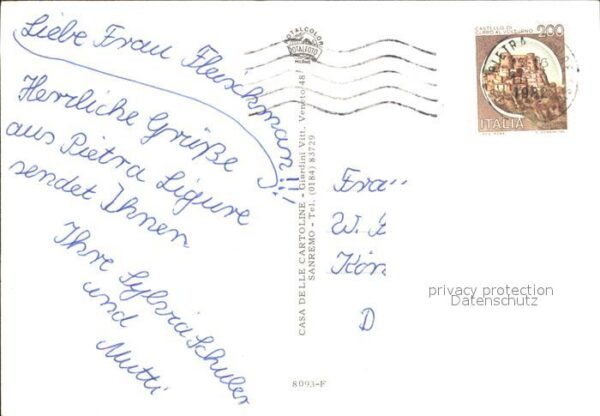 Liebe Frau Fleischmann!!!
Herrliche Grüße
aus Pietra Ligure
sendet Ihnen
Ihre Sylvia Schuler
und
Mutti
TOTALCOLOR
TOTALFOTO
CASA DELLE CARTOLINE - Giardini Vitt. Veneto 48
SANREMO - Tel. (0184) 83729
8093-F
CASTELLO DI
CERRO AL VOLTURNO
200
ITALIA
PIETRA
Frau
W.
Kön
D
privacy protection
Datenschutz